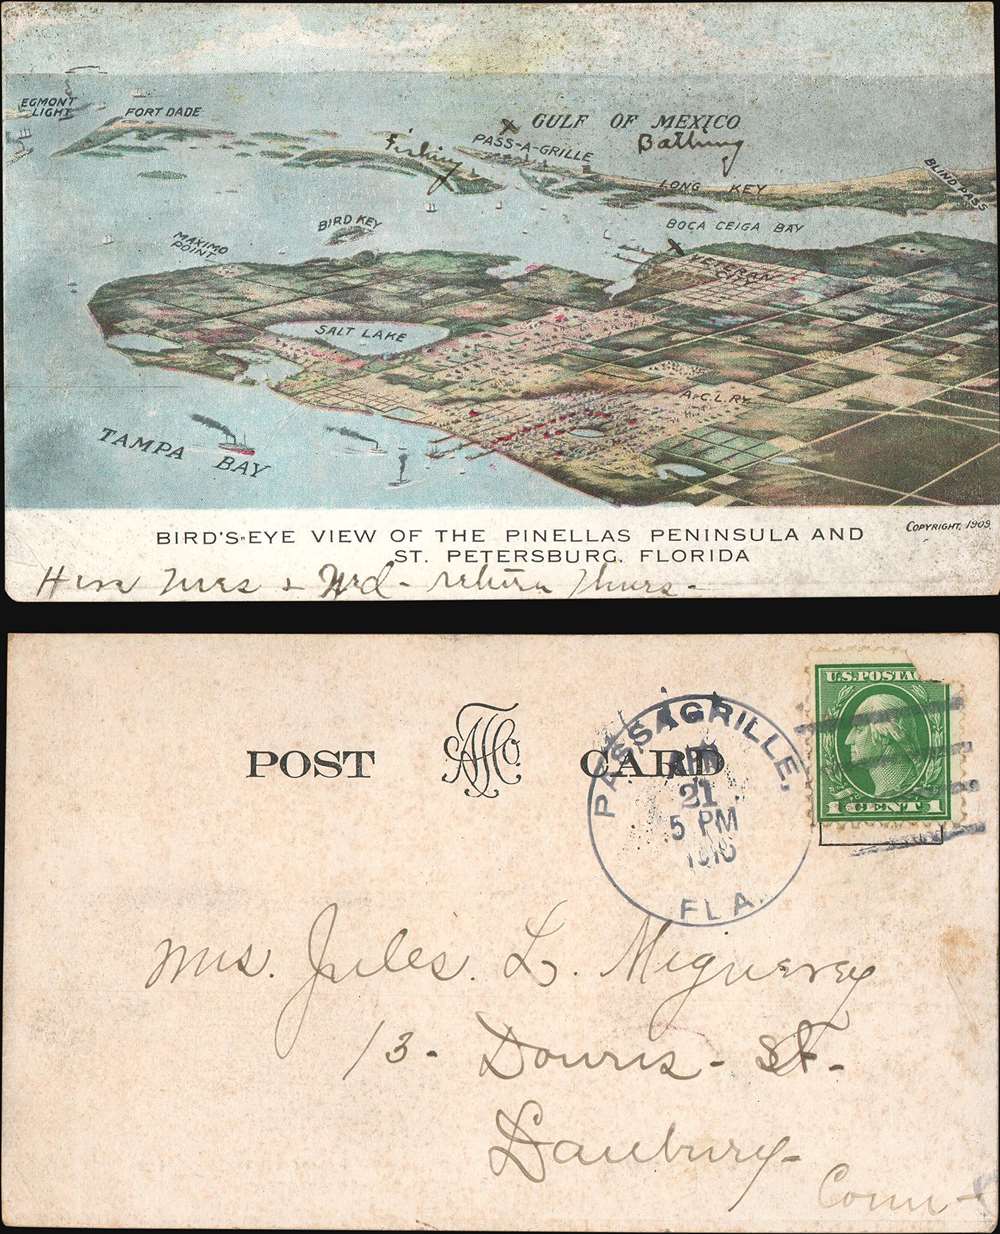 EGMONT
LIGHT
FORT DADE
GULF OF MEXICO
X
PASS-A-GRILLE
Fishing
Bathing
LONG KEY
BLIND PASS
BIRD KEY
BOCA CEIGA BAY
MAXIMO
POINT
X
VETERAN
CITY
SALT LAKE
A.C.L.RY.
TAMPA BAY
COPYRIGHT, 1909.
BIRD'S-EYE VIEW OF THE PINELLAS PENINSULA AND
ST. PETERSBURG, FLORIDA
Here Tues & Wed - return Thurs -
POST CARD
PASSAGRILLE,
APR
21
5 PM
FLA.
U.S. POSTAG
1 CENT 1
Mrs. Jules. L.
13 - Downs - St. -
Danbury -
Conn -